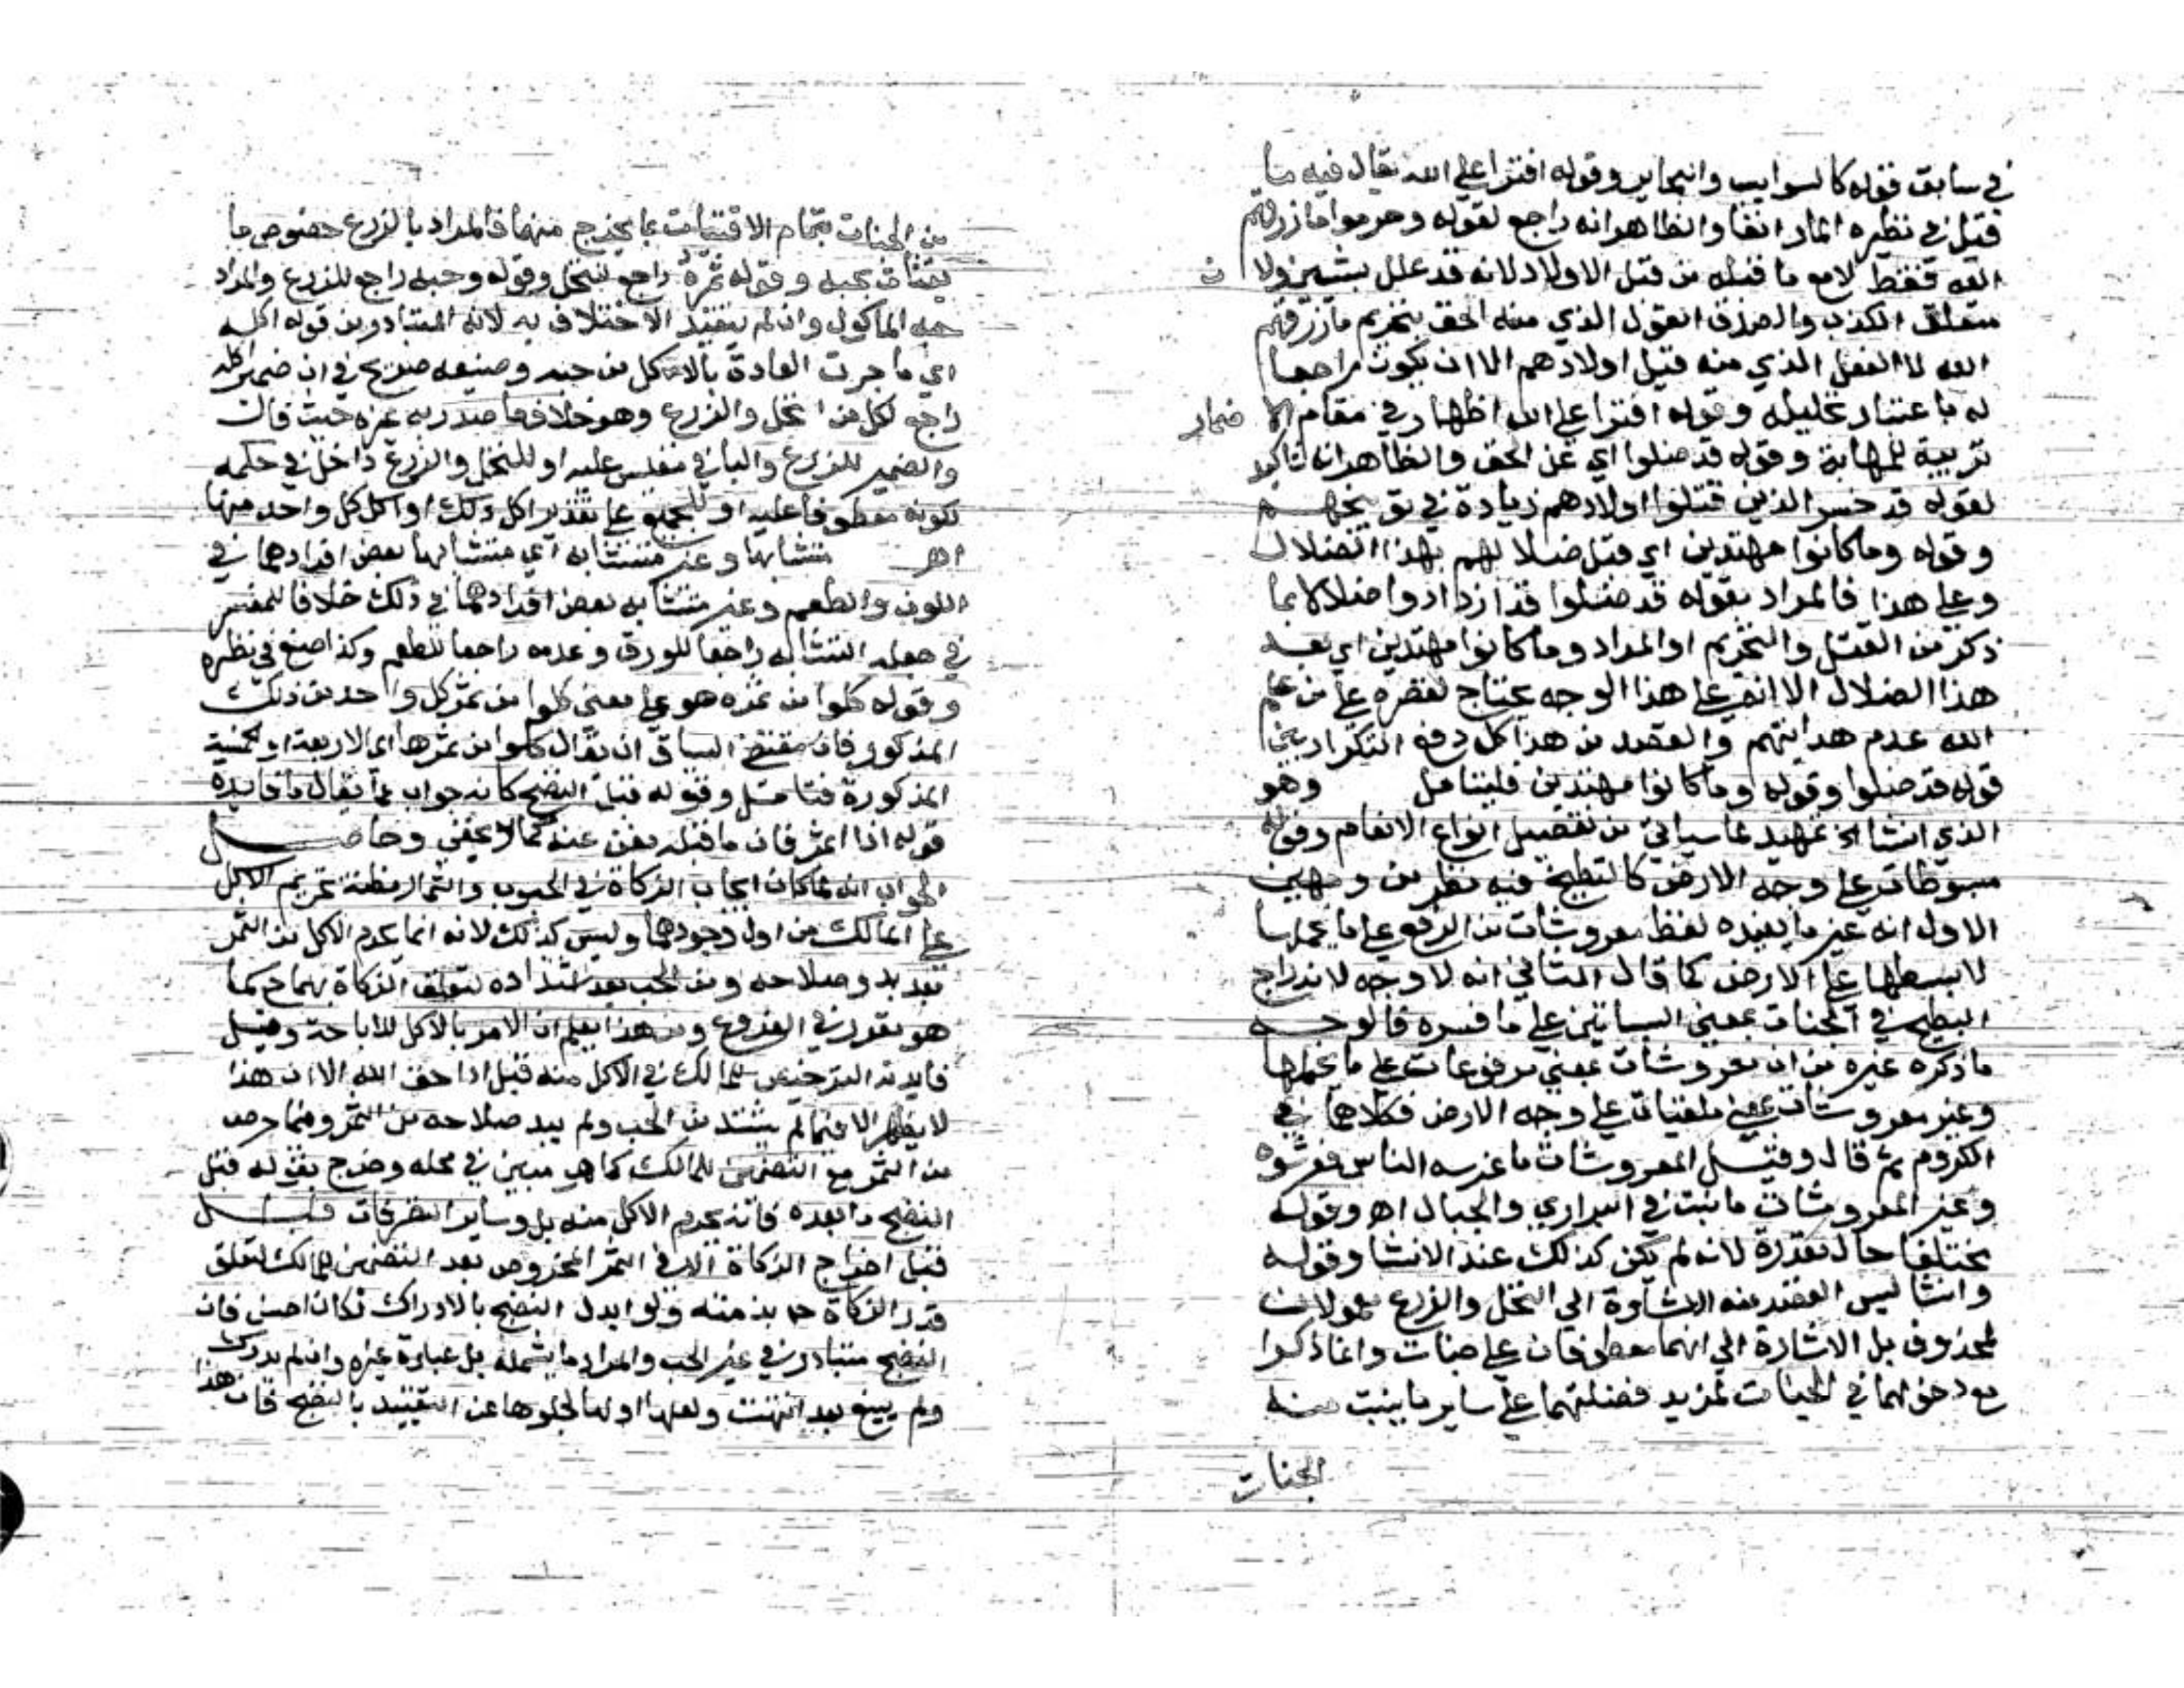 في سابق فقوله كالسوايب والبحاير وقوله افتراء على الله يقال فيه ما
قيل في نظيره المار انفا والظاهر انه راجع لقوله وحرموا ما رزقهم
الله فقط لا مع ما قبله من قتل الاولاد لانه قد علل بشيين ولان
متعلق الكذب والصدق القول الذي منه الحق بتحريم ما رزقهم
الله لا الفعل الذي منه قتل اولادهم الا ان يكون راجعا
له باعتبار تحليله وقوله افتراء على الله اظهار في مقام الاضمار
تربية للمهابة وقوله قد ضلوا اي عن الحق والظاهر انه تاكيد
لقوله قد خسر الذين قتلوا اولادهم زيادة في توبيخهم
وقوله وما كانوا مهتدين اي قبل ضلالهم بهذا الضلال
وعلى هذا فالمراد بقوله قد ضلوا قد ازدادوا ضلالا بما
ذكر من القتل والتحريم او المراد وما كانوا مهتدين اي بعد
هذا الضلال الا انه على هذا الوجه يحتاج لقصره على من علم
الله عدم هدايتهم والقصد من هذا كل دفع التكرار بين
قوله قد ضلوا وقوله وما كانوا مهتدين فليتامل وهو
الذي انشا الخ تمهيد لما سياتي من تفصيل انواع الانعام وقوله
مبسوطات على وجه الارض كالبطيخ فيه نظر من وجهين
الاول انه غير ما يفيده لفظ معروشات من الرفع على ما يحملها
لا بسطها على الارض كما قال الثاني انه لا وجه لاندراج
البطيخ في الجنات بمعنى البساتين على ما فسره فالوجه
ما ذكره غيره من ان معروشات بمعنى مرفوعات على ما يحملها
وغير معروشات بمعنى ملقيات على وجه الارض فكلاهما في
الكروم ثم قال وقيل المعروشات ما غرسه الناس فعرشوه
وغير المعروشات ما نبت في البراري والجبال اهـ وقوله
مختلفا حال مقدرة لانه لم يكن كذلك عند الانشا وقوله
وانشا ليس القصد منه الاشارة الى النخل والزرع معمولان
لمحذوف بل الاشارة الى انهما معطوفان على جنات وانما ذكرا
مع دخولهما في الجنات لمزيد فضلتهما على ساير ما ينبت منه
الجنات
من الجنات بتمام الاقتيات بما يخرج منهما فالمراد بالزرع خصوص ما
يقتات بحبه وقوله ثمره راجع للنخل وقوله وحبه راجع للزرع والمراد
حبه الماكول وان لم يتقيد الاختلاف به لانه المتبادر من قوله اكله
اي ما جرت العادة بالاكل من حبه وصنيعه صريح في ان ضمير اكله
راجع لكل من النخل والزرع وهو خلاف ما صدر به غيره حيث قال
والضمير للزرع والباقي مقيس عليه او للنخل والزرع داخل في حكمه
لكونه معطوفا عليه او للجميع على تقدير اكل ذلك او اكل كل واحد منها
اهـ متشابها وغير متشابه اي متشابها بعض افرادهما في
اللون والطعم وغير متشابه بعض افرادهما في ذلك خلافا للمفسر
في جعله التشابه راجعا للورق وعدمه راجعا للطعم وكذا صنع في نظيره
وقوله كلوا من ثمره هو على معنى كلوا من ثمر كل واحد من ذلك
المذكور فان مقتضى السياق ان يقال كلوا من ثمرها اي الاربعة او الخمسة
المذكورة فتامل وقوله قبل النضج كانه جواب عما يقال ما فايدة
قوله اذا اثمر فان ما قبله يغني عنه كما لا يخفى وحاصل
الجواب انه لما كان ايجاب الزكاة في الحبوب والثمار مظنة تحريم الاكل
على المالك من اول وجودهما وليس كذلك لانه انما يحرم الاكل من الثمر
بعد بدو صلاحه ومن الحب بعد اشتداده لتعلق الزكاة بهما ح كما
هو مقرر في الفروع ومن هذا يعلم ان الامر بالاكل للاباحة وقيل
فايدته الترخيص للمالك في الاكل منه قبل ادا حق الله الا ان هذا
لا يظهر الا فيما لم يشتد من الحب ولم يبد صلاحه من الثمر وفيما خرص
من الثمر مع التضمين للمالك كما هو مبين في محله وخرج بقوله قبل
النضج ما بعده فانه يحرم الاكل منه بل وساير التصرفات قبل
قبل اخراج الزكاة الا في الثمر المخروص بعد التضمين للمالك لتعلق
قدر الزكاة ح بذمته ولو ابدل النضج بالادراك لكان احسن فان
النضج متبادر في غير الحب والمراد ما يشمله بل عبارة غيره وان لم يدرك
ولم يينع بعد انتهت ولعلها اولى لخلوها عن التقييد بالنضج فان هذا